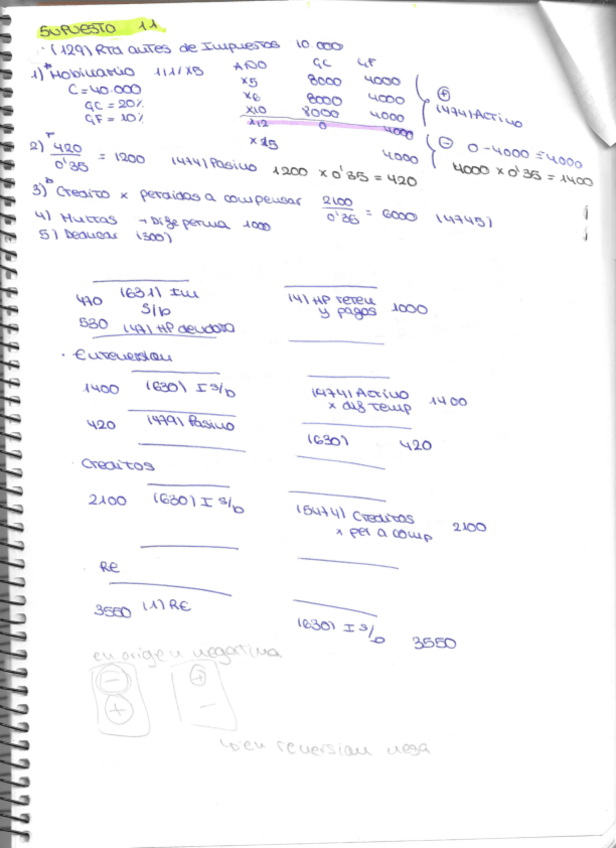 SUPUESTO 11
· (129) Rta antes de Impuestos 10.000
1) Mobiliario 1/1/X5 AÑO GC GF
C = 40.000 X5 8000 4000
GC = 20% X6 8000 4000 (+)
GF = 10% X10 8000 4000 (4741) Activo
X12 0 4000
X15 4000 (-) 0-4000 = 4000
4000 x 0'35 = 1400
2) 420 / 0'35 = 1200 (479) Pasivo 1200 x 0'35 = 420
3) Credito x perdidas a compensar 2100 / 0'35 = 6000 (4745)
4) Multas → Dife perma 1000
5) Deducar (300)
470 (631) Im s/b (4) HP reten y pagos 1000
530 (47) HP deudora
· En reversion
1400 (630) I s/b (474) Activo x dif temp 1400
420 (479) Pasivo (630) 420
· Creditos
2100 (630) I s/b (5474) Creditos x per a comp 2100
RE
3550 (1) RE (630) I s/b 3550
en origen negativa
(-) (+)
(+) -
en reversion nega